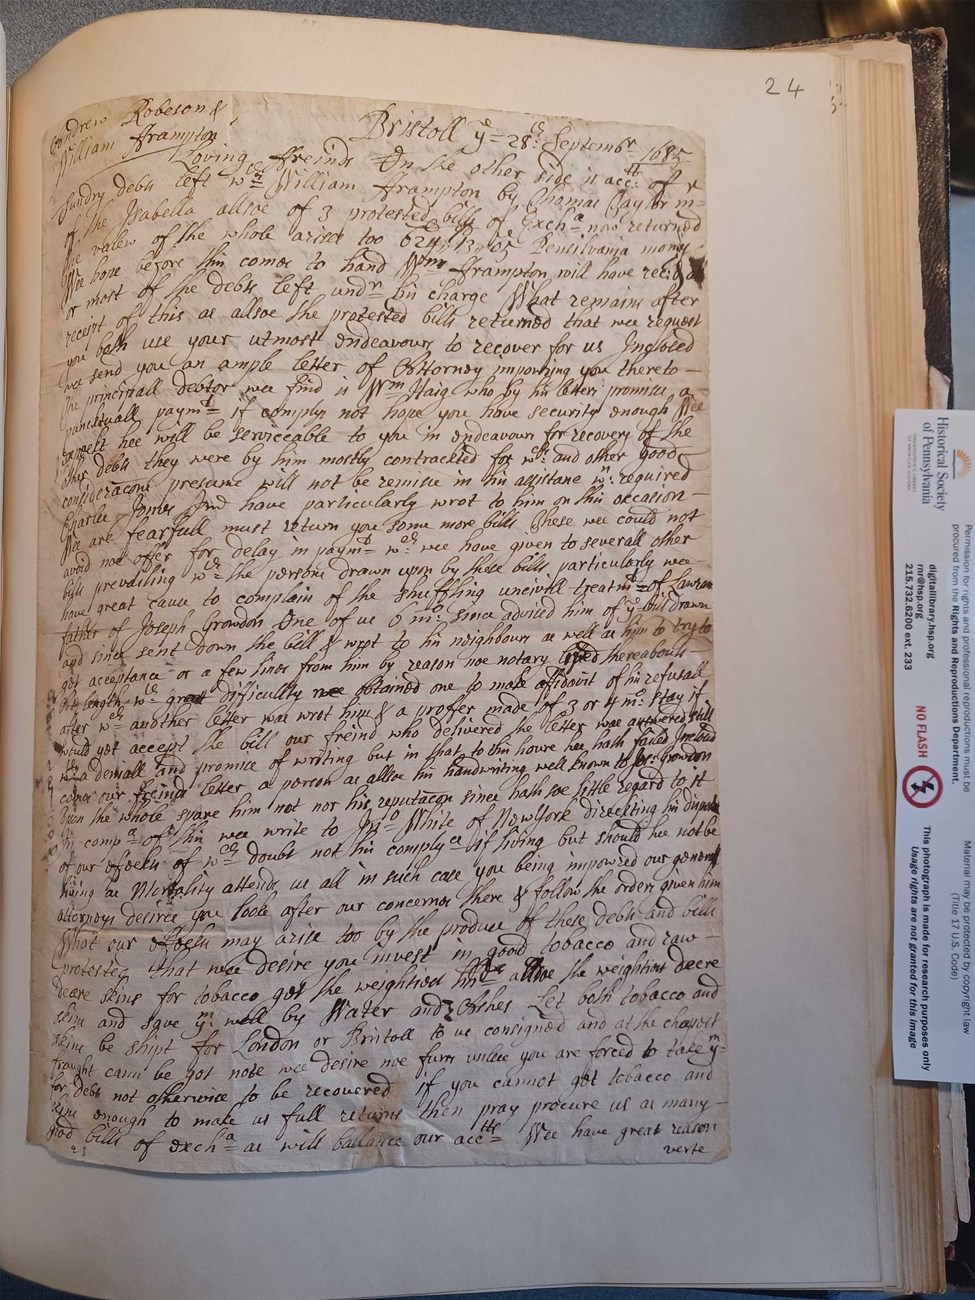 24
Andrew Robeson &
William Frampton
Bristoll yᵉ 28ᵗʰ Septembʳ 1685
Loving Freinds On the other side is accᵗᵗ of
sundry debts left wᵗʰ William Frampton by Thomas Taylor
of the Isabella allsoe of 3 protested bills of Exchᵃ now returned
the valew of the whole arises too 624 13 05 Pensilvania mony
Wee hope before this comes to hand Wᵐ Frampton will have
or most of the debts left undʳ his charge What remains after
receipt of this as allsoe the protested bills returned that wee request
you both use your utmost endeavours to recover for us Inclosed
wee send you an ample letter of Attorney impowring you thereto
the principall debtor wee find is Wᵐ Haig who by his letters promises a
punctuall paymᵗ if comply not hope you have security enough Wee
expect hee will be serviceable to you in endeavours for recovery of the
other debts they were by him mostly contracted for wᶜʰ and other good
consideracons presume will not be remise in his assistane wⁿ required
Charles Jones Jnd have particularly wrot to him on this occasion
Wee are fearfull must return you some more bills these wee could not
avoid noe offer for delay in paymᵗ wᶜʰ wee have given to severall other
bills prevailing wᵗʰ the persons drawn upon by these bills particularly wee
have great cause to complain of the shuffling uncivill treatmᵗ of
father of Joseph Growdon One of us 6 mᵒ since adviced him of yᵉ bill drawn
and since sent down the bill & wrot to his neighbours as well as him to try to
get acceptance or a few lines from him by reason noe notary lived thereabouts
at length wᵗʰ great difficulty obtained one to make affidavit of his refusall
after wᶜʰ another letter was wrot him & a proffer made of 3 or 4 mᵒ stay if
would yet accept the bill our freind who delivered the letter was answered still
wᵗʰ a deniall and promise of writing but in that to this houre hee hath failed Inclosed
comes our freinds letter a person as allsoe his handwriting well known to Jos: Growdon
Upon the whole spare him not nor his reputacon since hath soe little regard to it
In compᵃ of this wee write to White of New York directing his
of our efects of wᶜʰ doubt not his complyᶜᵉ if living but should hee not be
living as Mortality attends us all in such case you being impowred our generall
attorneys desire you looke after our concernes there & follow the orders given him
What our efects may arise too by the produce of these debts and bills
protested that wee desire you invest in good tobacco and raw
deare skins for tobacco get the weightiest allsoe the weightiest deere
skins and save yᵐ well by Water and Ashes Let both tobacco and
skins be shipt for London or Bristoll to us consigned and at the chepest
fraught cann be got note wee desire noe furrs unless you are forced to take yᵐ
for debts not otherwise to be recovered if you cannot get tobacco and
skins enough to make us full returns then pray procure us as many
good bills of exchᵃ as will ballance our accᵗᵗˢ Wee have great reason
verte
Historical Society
of Pennsylvania
digitallibrary.hsp.org
rnr@hsp.org
215.732.6200 ext. 233
NO FLASH
This photograph is made for research purposes only
Usage rights are not granted for this image
Permission for rights and professional reproductions must be
procured from the Rights and Reproductions Department.
Material may be protected by copyright law
(Title 17 U.S. Code)